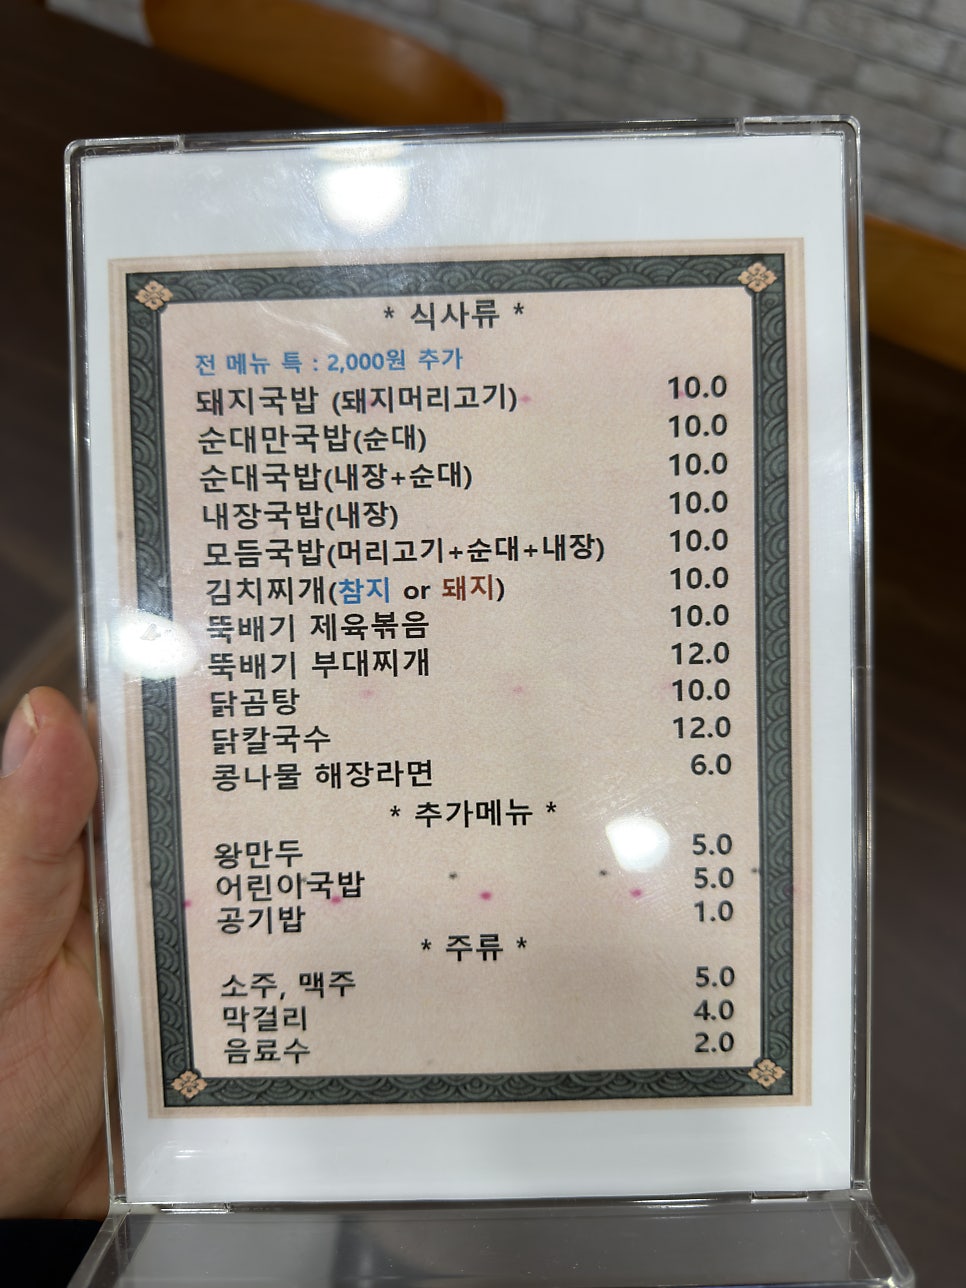 * 식사류 *
전 메뉴 특 : 2,000원 추가
돼지국밥 (돼지머리고기) 10.0
순대만국밥(순대) 10.0
순대국밥(내장+순대) 10.0
내장국밥(내장) 10.0
모듬국밥(머리고기+순대+내장) 10.0
김치찌개(참지 or 돼지) 10.0
뚝배기 제육볶음 10.0
뚝배기 부대찌개 12.0
닭곰탕 10.0
닭칼국수 12.0
콩나물 해장라면 6.0
* 추가메뉴 *
왕만두 5.0
어린아국밥 5.0
공기밥 1.0
* 주류 *
소주, 맥주 5.0
막걸리 4.0
음료수 2.0